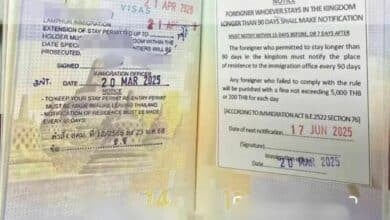 VISAS
1 APR 2026
LAMPHUN IMMIGRATION
EXTENSION OF STAY PERMITTED UP TO
21 APR 2026
HOLDER MUST
WITHIN THE
DATE SPECI
WILL BE
PROSEC
IMMIGRATION OFFICER
20 MAR 2025
NOTICE
-TO KEEP YOUR STAY PERMIT RE-ENTRY PERMIT
MUST BE MADE BEFORE LEAVING THAILAND
-NOTIFICATION OF RESIDENCE MUST BE MADE
EVERY 90 DAYS
NOTICE
FOREIGNER WHOEVER STAYS IN THE KINGDOM
LONGER THAN 90 DAYS SHALL MAKE NOTIFICATION
MUST NOTIFY WITHIN 15 DAYS BEFORE, OR 7 DAYS AFTER
The foreigner who permitted to stay longer than
90 days in the kingdom must notify the place
of residence to the immigration office every 90 days
Any foreigner who failed to comply with the rule
will be punished with a fine not exceeding 5,000 THB
or 200 THB for each day
[ACCORDING TO IMMIGRATION ACT B.E.2522 SECTION 76]
Date of next notification 17 JUN 2025
(Signature)
Immigration
Date 20 MAR 2025